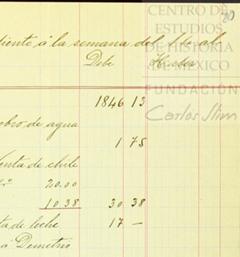 CENTRO DE
ESTUDIOS
DE HISTORIA
DE MÉXICO
FUNDACIÓN
Carlos Slim
diente á la semana del 16 al
Debe Haber
1846 13
obro de agua
1 75
enta de chile
20.00
10.38 30 38
ta de leche 17 —
á Demetrio